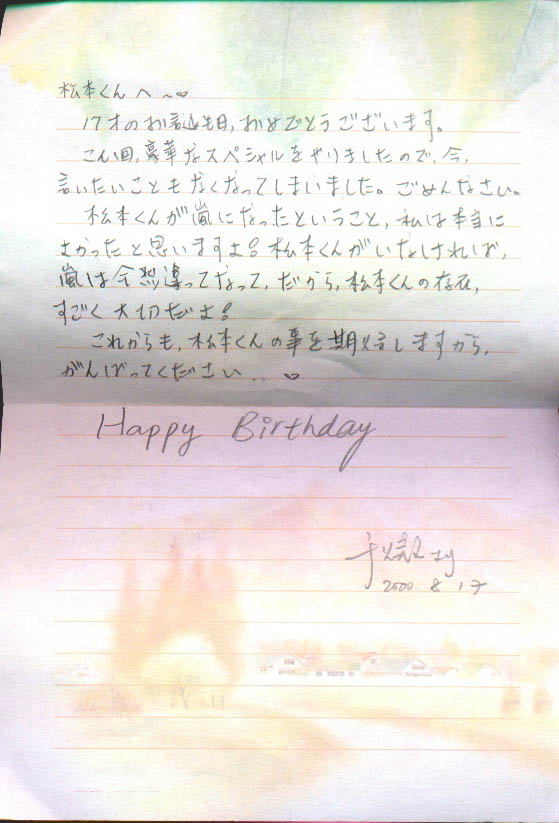 松本くんへ~♡
17才のお誕生日,おめでとうございます。
こん回,豪華なスペシャルをやりましたので,今,
言いたいこともなくなってしまいました。ごめんなさい。
松本くんが嵐になったということ,私は本当に
よかったと思いますよ!松本くんがいなければ,
嵐は全然違ってなって,だから,松本くんの存在,
すごく大切だよ!
これからも,松本くんの事を期待しますから,
がんばってください...♡
Happy Birthday
より
2000. 8. 17